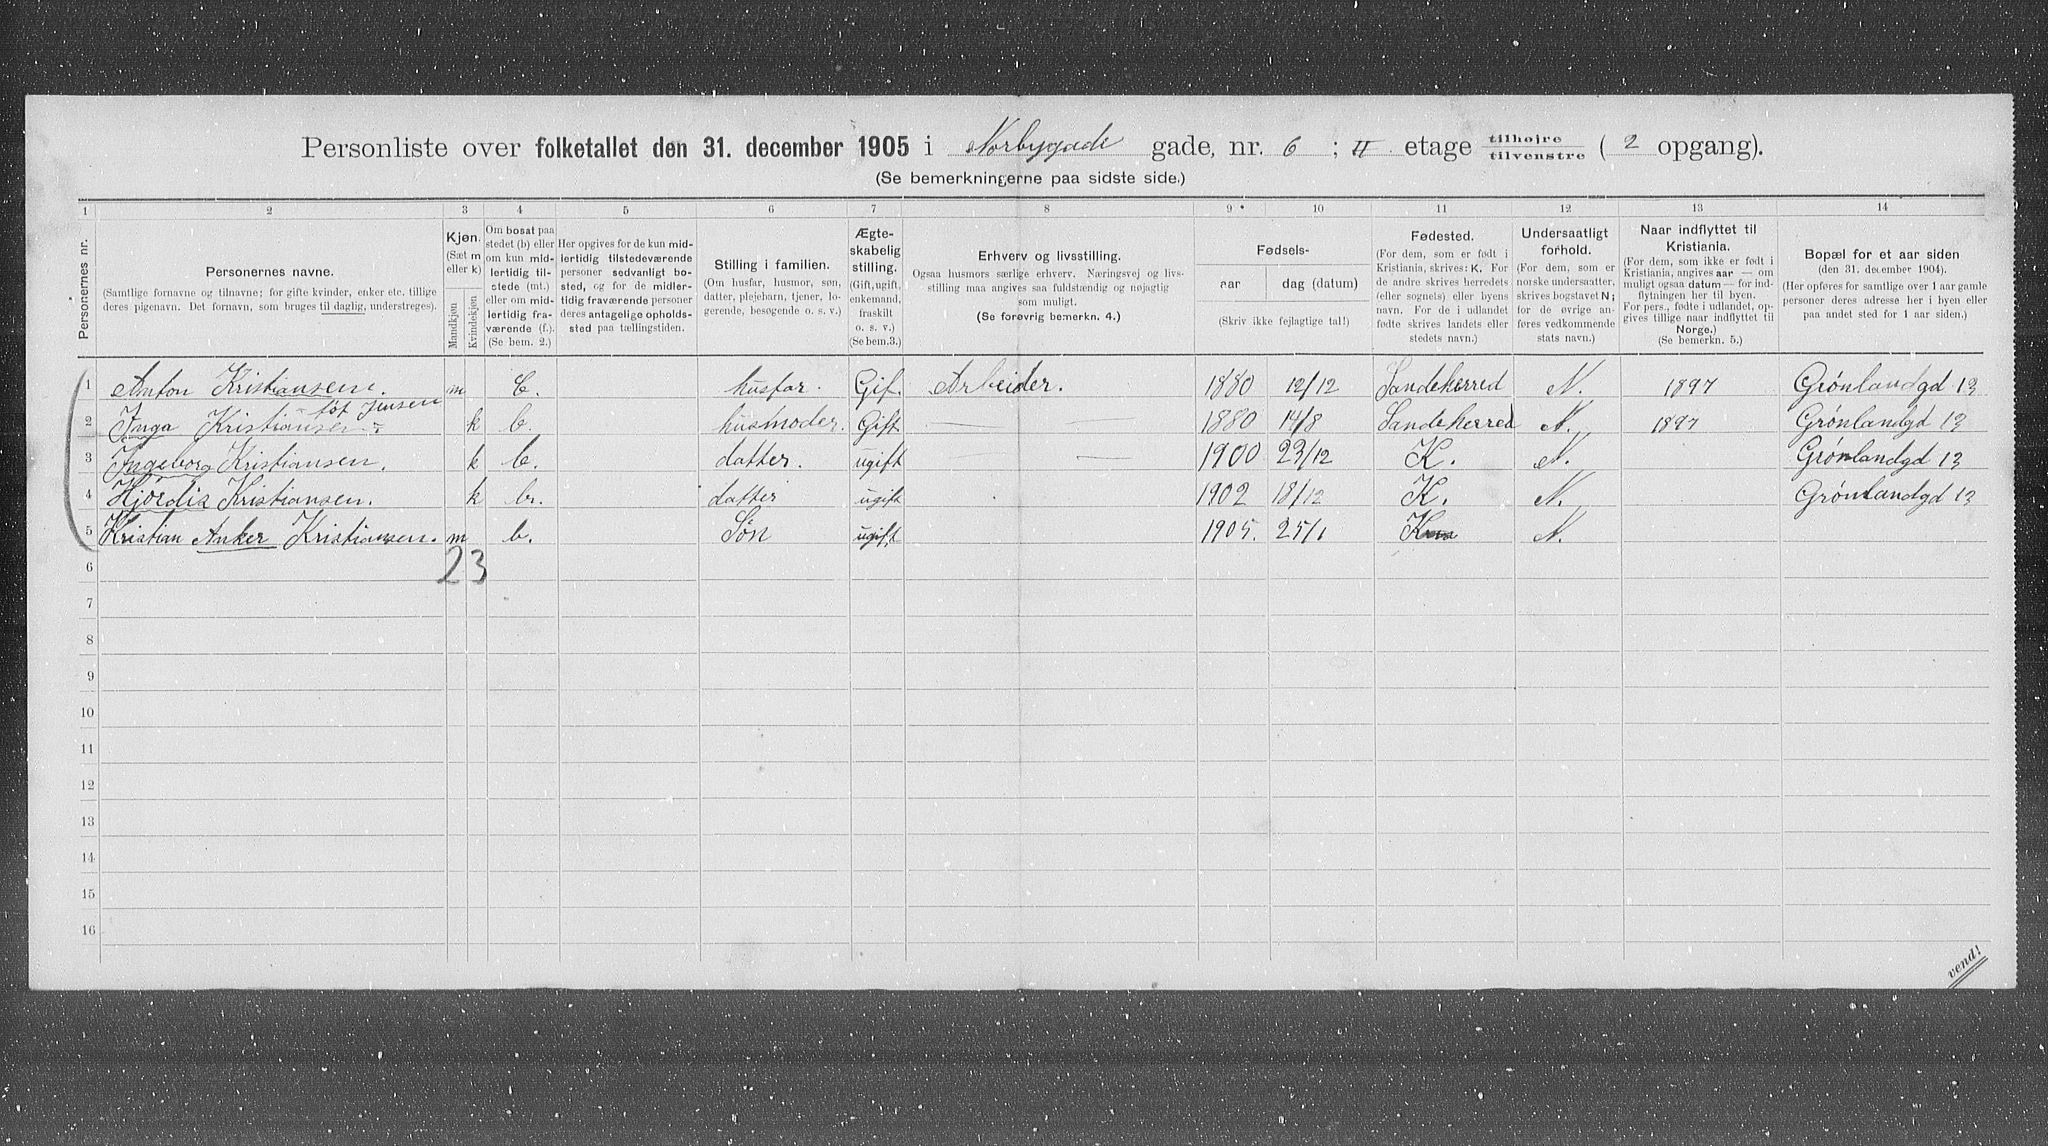 Personliste over folketallet den 31. december 1905 i Norbygade gade, nr. 6 ; II etage tilhøjre tilvenstre ( 2 opgang).
(Se bemerkningerne paa sidste side.)
1 2 3 4 5 6 7 8 9 10 11 12 13 14
Personernes nr.
Personernes navne.
(Samtlige fornavne og tilnavne; for gifte kvinder, enker etc. tillige
deres pigenavn. Det fornavn, som bruges til daglig, understreges).
Kjøn.
(Sæt m
eller k)
Mandkjøn
Kvindekjøn
Om bosat paa
stedet (b) eller
om kun mid-
lertidig til-
stede (mt.)
eller om mid-
lertidig fra-
værende (f.).
(Se bem. 2.)
Her opgives for de kun mid-
lertidig tilstedeværende
personer sedvanligt bo-
sted, og for de midler-
tidig fraværende personer
deres antagelige opholds-
sted paa tællingstiden.
Stilling i familien.
(Om husfar, husmor, søn,
datter, plejebarn, tjener, lo-
gerende, besøgende o. s. v.)
Ægte-
skabelig
stilling.
(Gift, ugift,
enkemand,
fraskilt
o. s. v.)
(Se bem.3.)
Erhverv og livsstilling.
Ogsaa husmors særlige erhverv. Næringsvej og livs-
stilling maa angives saa fuldstændig og nøjagtig
som muligt.
(Se forøvrig bemerkn. 4.)
Fødsels-
aar dag (datum)
(Skriv ikke fejlagtige tal!)
Fødested.
(For dem, som er født i
Kristiania, skrives: K. For
de andre skrives herredets
(eller sognets) eller byens
navn. For de i udlandet
fødte skrives landets eller
stedets navn.)
Undersaatligt
forhold.
(For dem, som er
norske undersaatter,
skrives bogstavet N;
for de øvrige an-
føres vedkommende
stats navn.)
Naar indflyttet til
Kristiania.
(For dem, som ikke er født i
Kristiania, angives aar — om
muligt ogsaa datum — for ind-
flytningen her til byen.
For pers., fødte i udlandet, op-
gives tillige naar indflyttet til
Norge.)
(Se bemerkn. 5.)
Bopæl for et aar siden
(den 31. december 1904).
(Her opføres for samtlige over 1 aar gamle
personer deres adresse her i byen eller
paa andet sted for 1 aar siden.)
1 Anton Kristiansen. m b. husfar. Gif. Arbeider. 1880 12/12 Sandeherred N. 1897 Grønlandgd 13
føt Jensen
2 Inga Kristiansen k b. husmoder. Gift — — 1880 14/8 Sandeherred N. 1897 Grønlandgd 13
3 Ingeborg Kristiansen. k b. datter. ugift — — 1900 23/12 K. N. Grønlandgd 13
4 Hjørdis Kristiansen. k b. datter ugift 1902 18/12 K. N. Grønlandgd 13
5 Kristian Anker Kristiansen. m b. Søn ugift 1905. 25/1 K N.
6 2 3
7
8
9
10
11
12
13
14
15
16
vend!